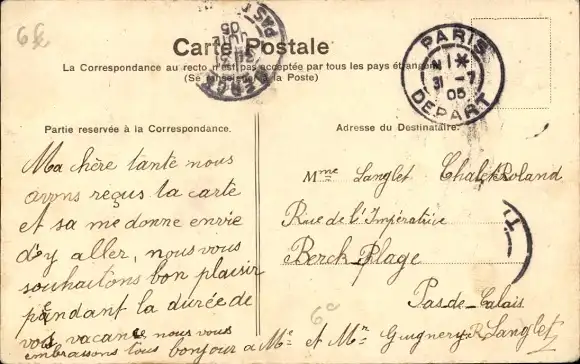 6f
Carte Postale
La Correspondance au recto n'est pas acceptée par tous les pays étrangers
(Se renseigner à la Poste)
PARIS
31 -7
05
DEPART
Partie reservée à la Correspondance.
Ma chère tante nous
avons reçus ta carte
et sa me donne envie
d'y aller, nous vous
souhaitons bon plaisir
pendant la durée de
vos vacance nous vous
embrassons tous bonjour a Me et Mr Guignery R. Langlet
Adresse du Destinataire.
Mme Langlet Chalet Roland
Rue de l'Impératrice
Berck-Plage
Pas-de-Calais
6c
T